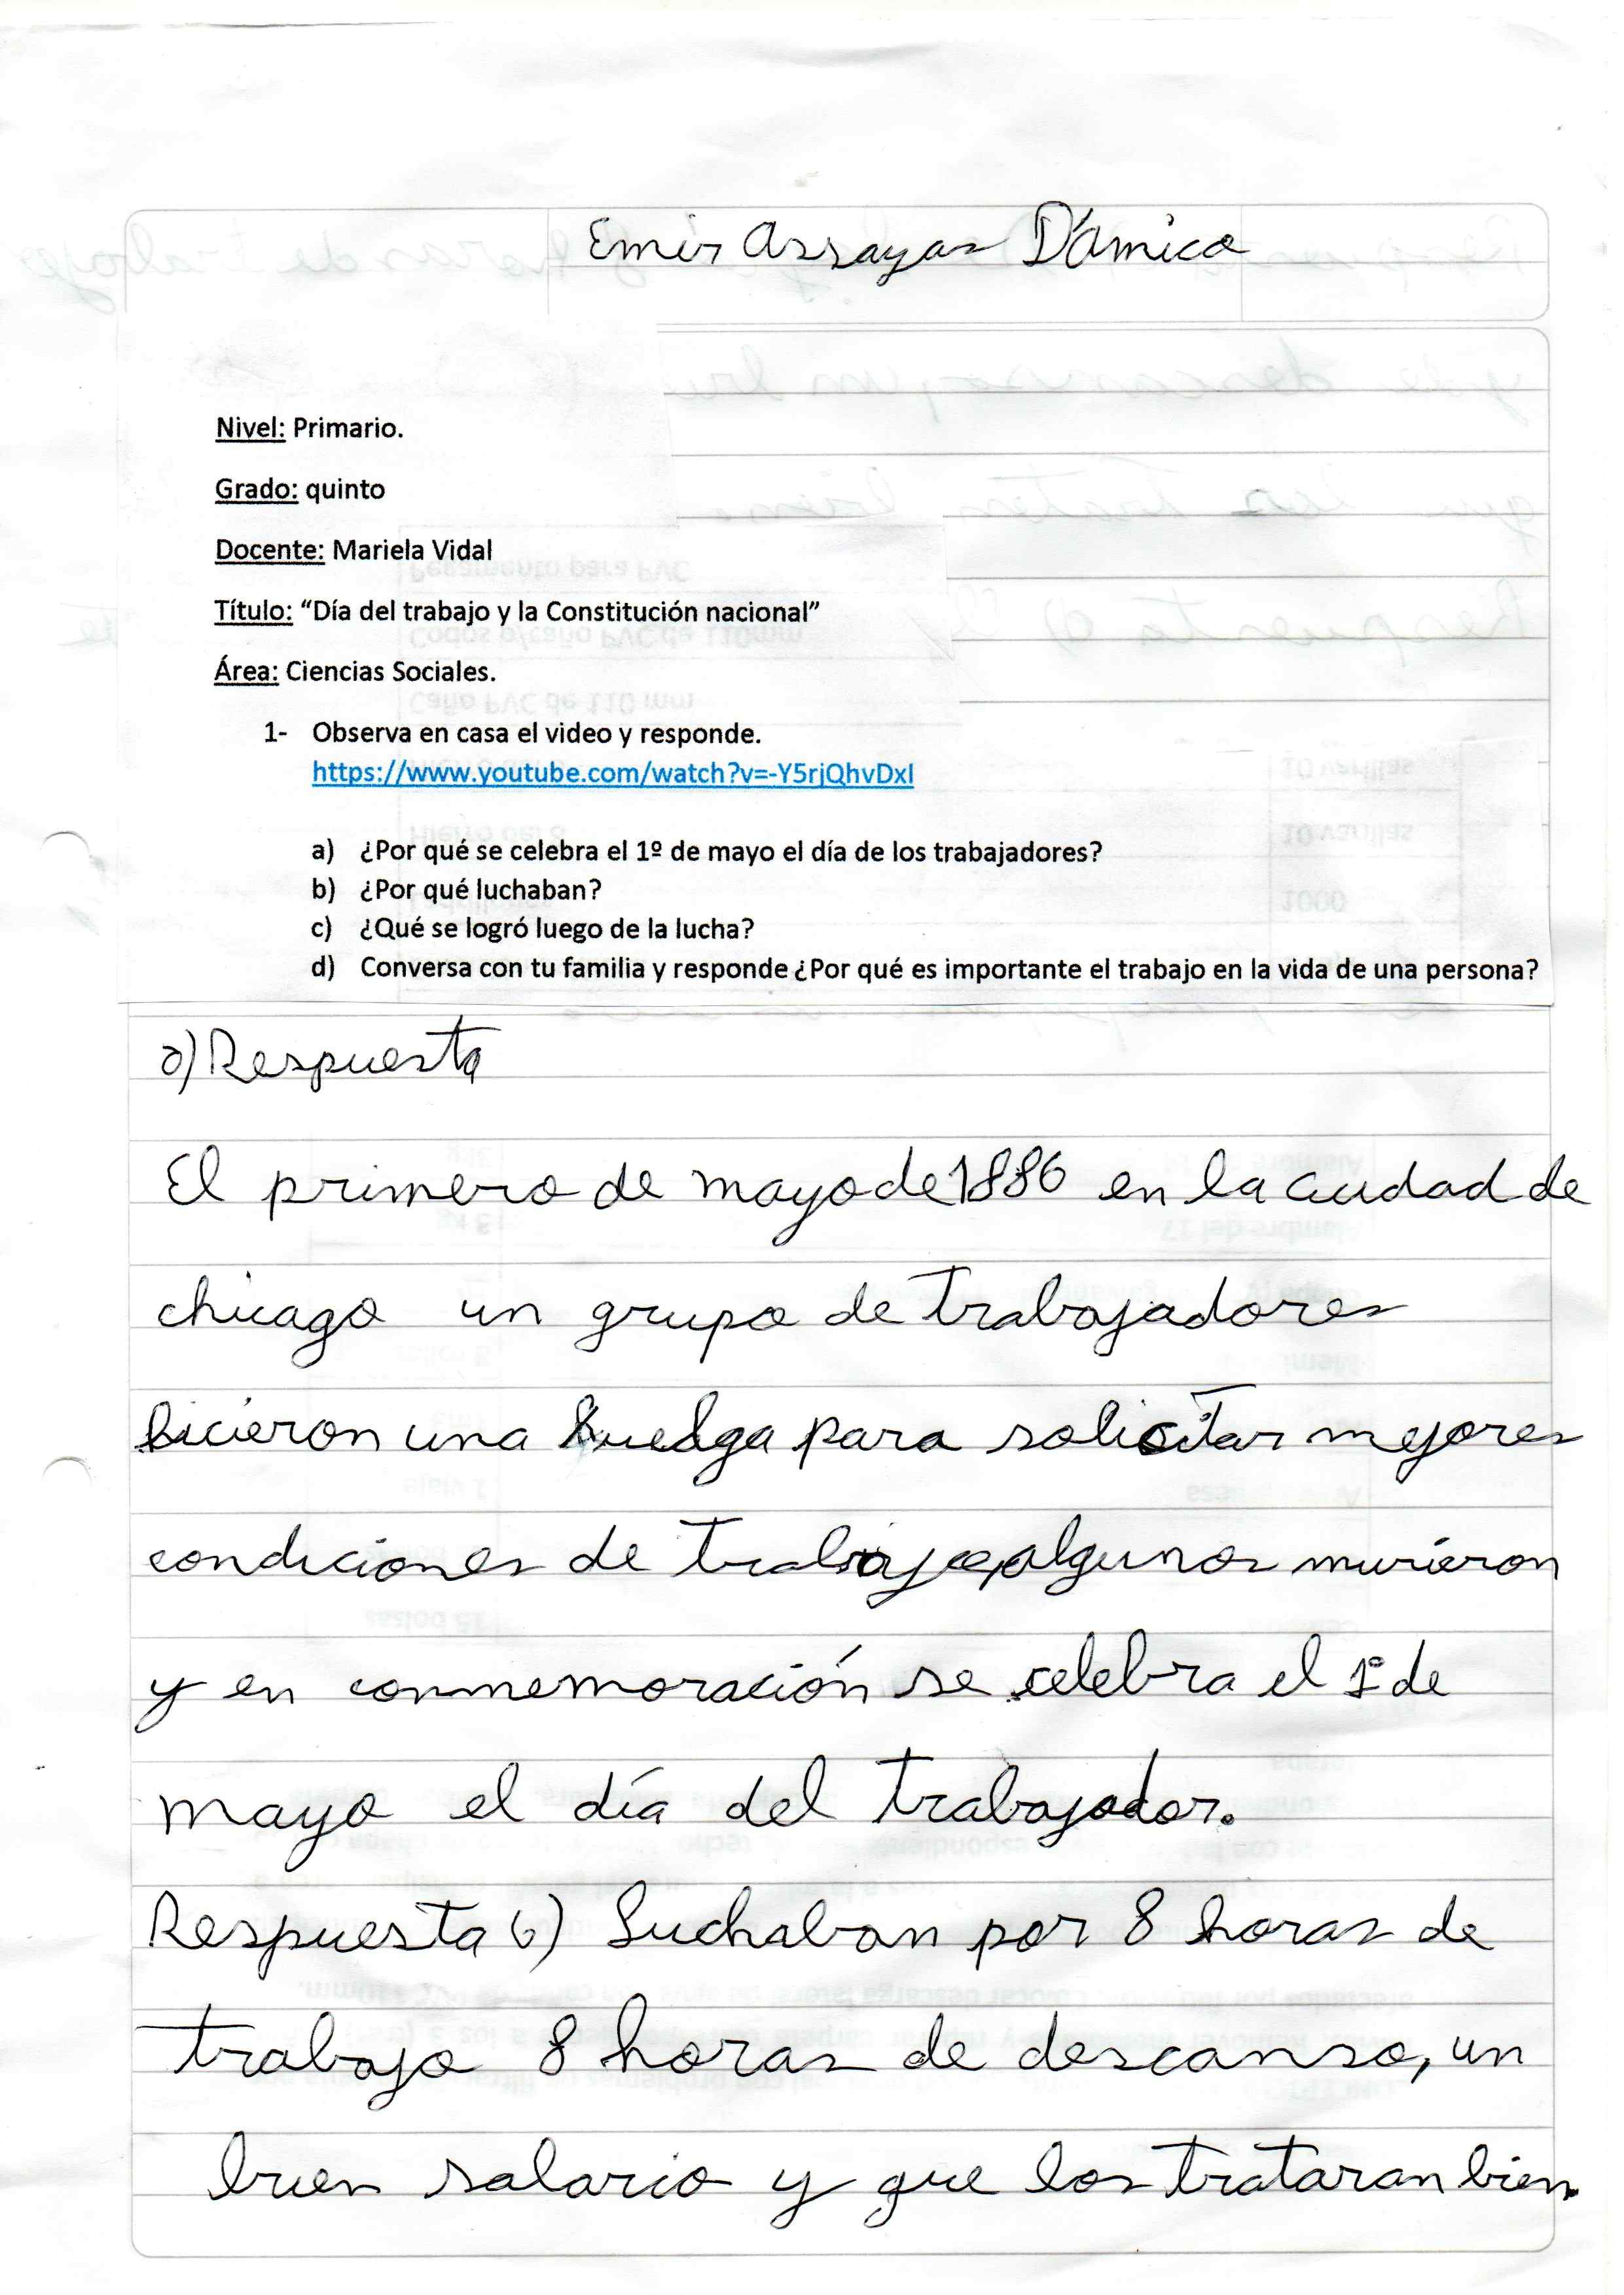 Emir Arrayas D'Amico
Nivel: Primario.
Grado: quinto
Docente: Mariela Vidal
Título: “Día del trabajo y la Constitución nacional”
Área: Ciencias Sociales.
1- Observa en casa el video y responde.
https://www.youtube.com/watch?v=-Y5rjQhvDxI
a) ¿Por qué se celebra el 1º de mayo el día de los trabajadores?
b) ¿Por qué luchaban?
c) ¿Qué se logró luego de la lucha?
d) Conversa con tu familia y responde ¿Por qué es importante el trabajo en la vida de una persona?
a) Respuesta
El primero de mayo de 1886 en la ciudad de
chicago un grupo de trabajadores
hicieron una huelga para solicitar mejores
condiciones de trabajo, algunos murieron
y en conmemoración se celebra el 1º de
mayo el día del trabajador.
Respuesta b) Luchaban por 8 horas de
trabajo 8 horas de descanso, un
buen salario y que los trataran bien.